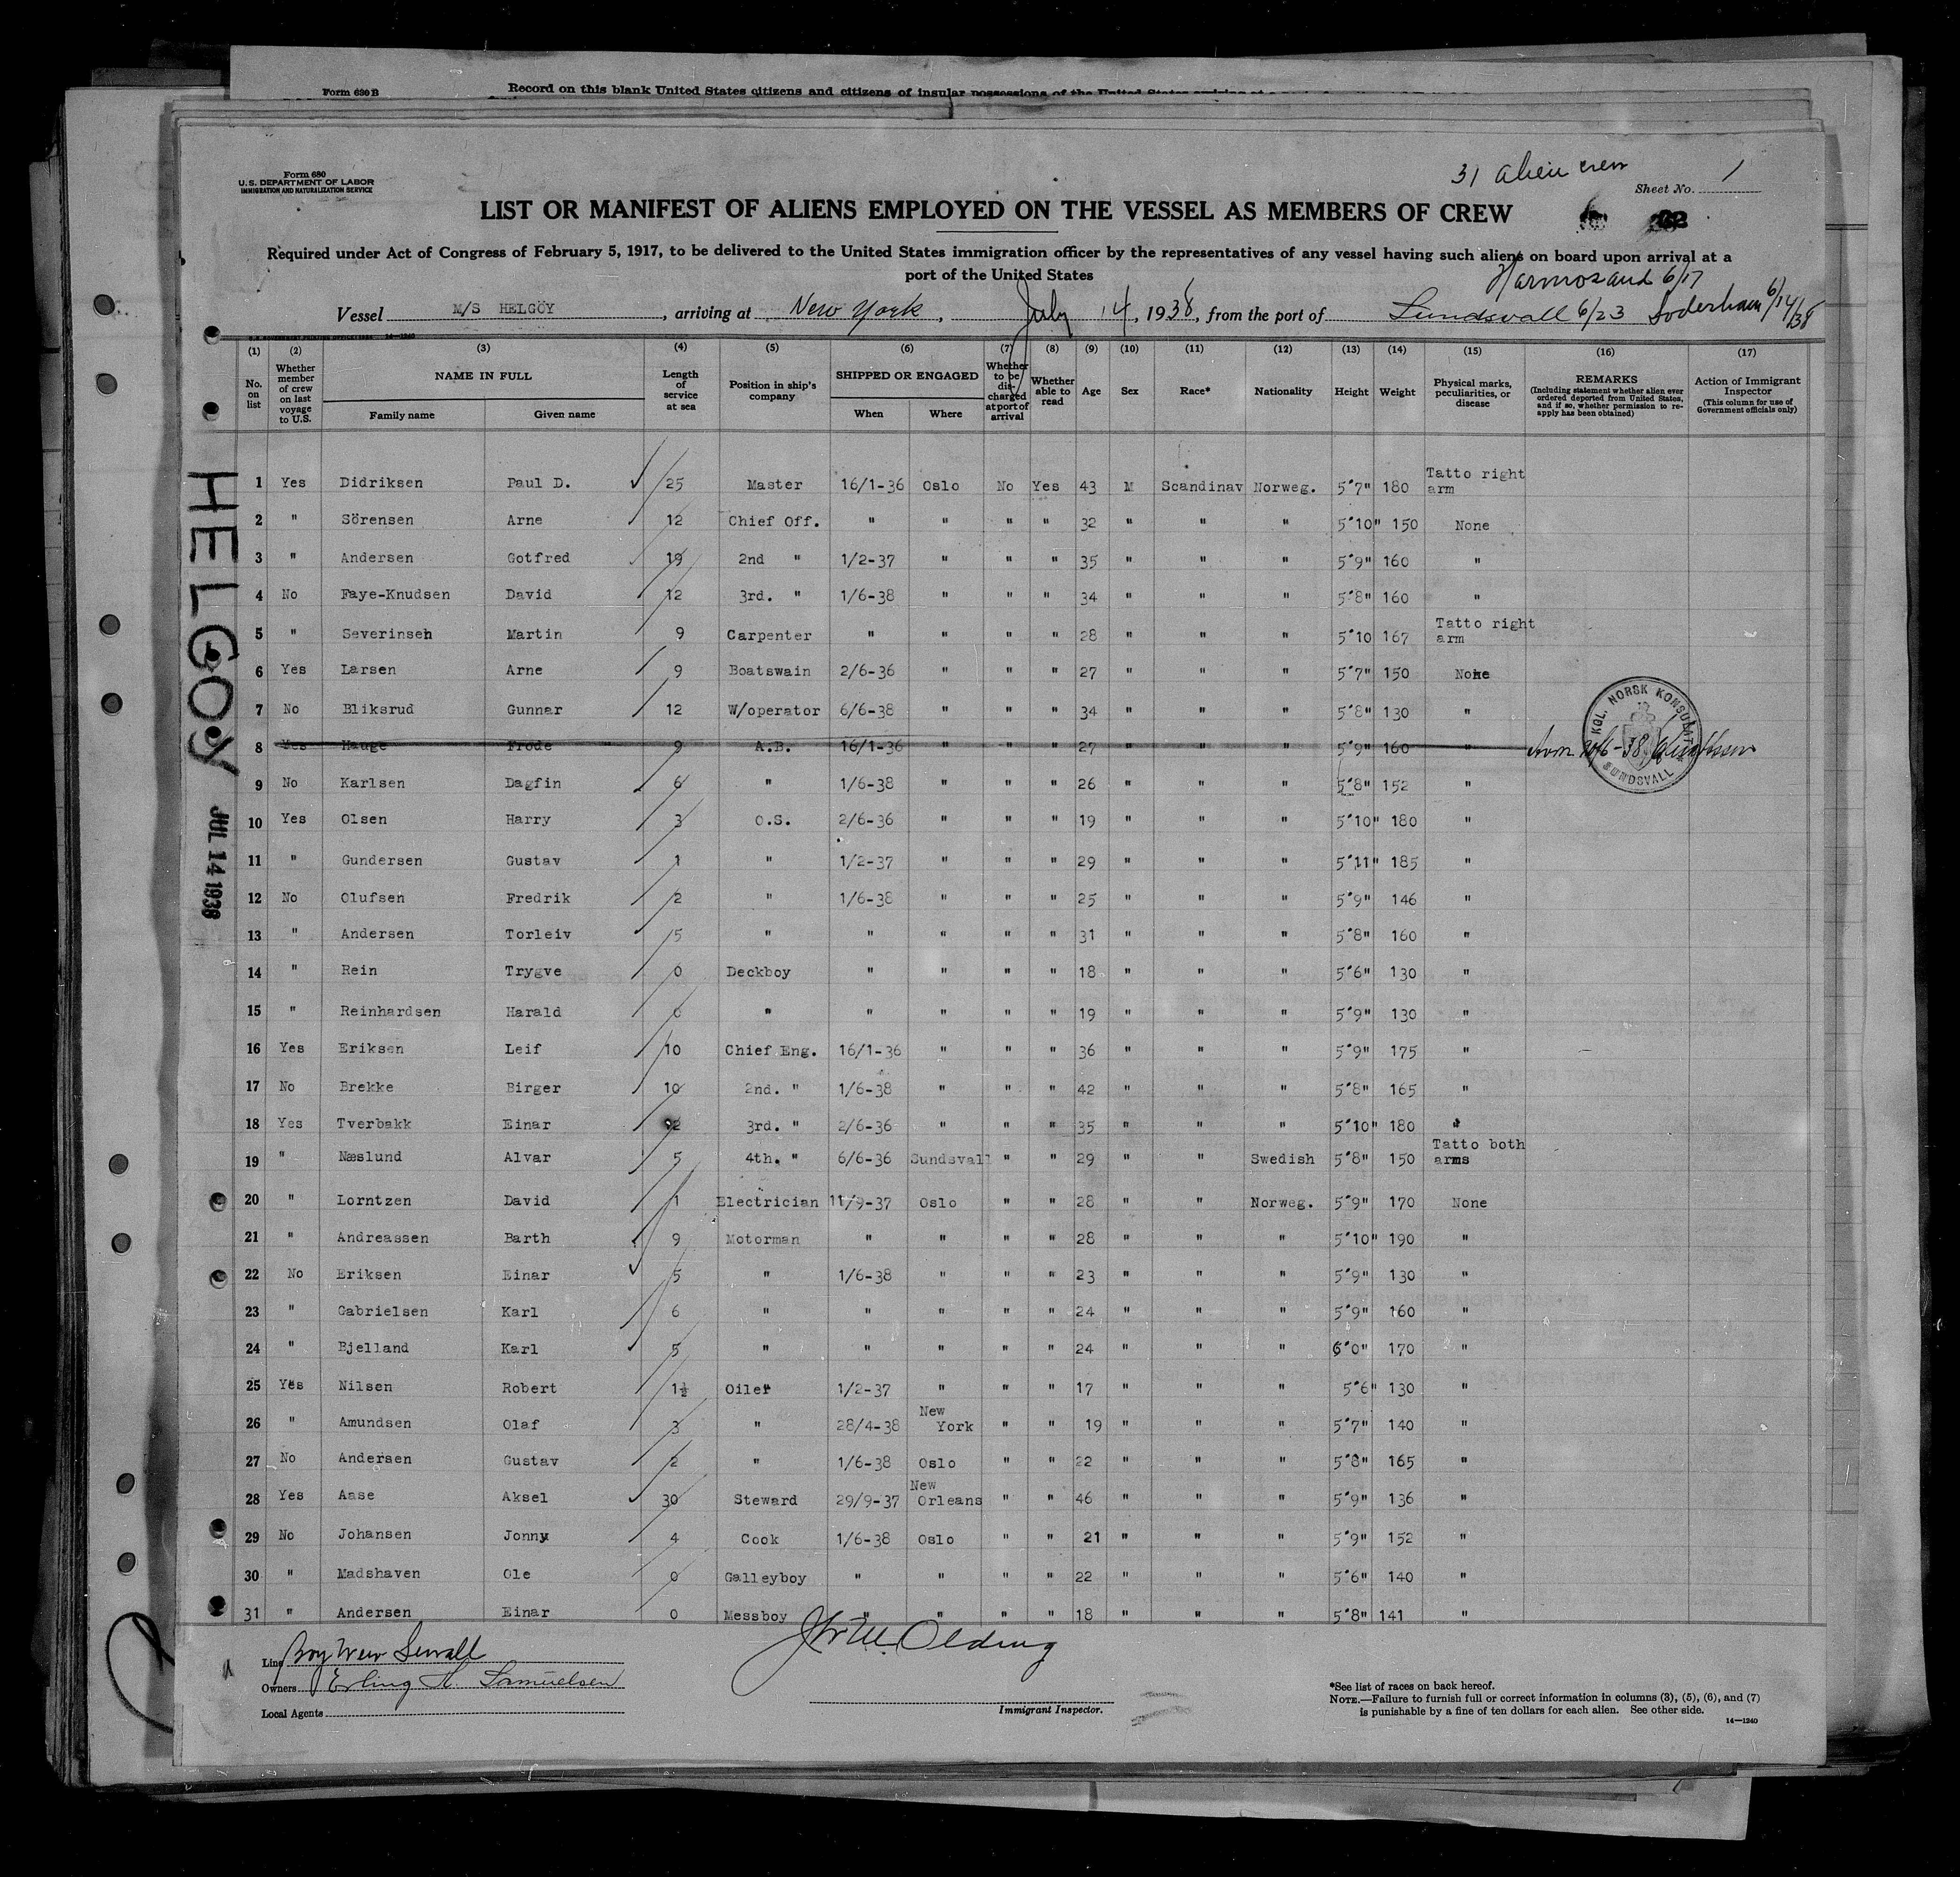 Form 630 B
Record on this blank United States citizens and citizens of insular possessions of the United States arriving at a
31 alien crew
Form 680
U.S. DEPARTMENT OF LABOR
IMMIGRATION AND NATURALIZATION SERVICE
Sheet No. 1
LIST OR MANIFEST OF ALIENS EMPLOYED ON THE VESSEL AS MEMBERS OF CREW
Required under Act of Congress of February 5, 1917, to be delivered to the United States immigration officer by the representatives of any vessel having such aliens on board upon arrival at a
port of the United States
Harnosand 6/17
Vessel M/S HELGÖY, arriving at New York, July 14, 1938, from the port of Sundsvall 6/23 Soderham 6/14/38
(1) (2) (3) (4) (5) (6) (7) (8) (9) (10) (11) (12) (13) (14) (15) (16) (17)
No. on list
Whether member of crew on last voyage to U.S.
NAME IN FULL
Family name Given name
Length of service at sea
Position in ship's company
SHIPPED OR ENGAGED
When Where
Whether to be discharged at port of arrival
Whether able to read
Age Sex Race* Nationality Height Weight
Physical marks, peculiarities, or disease
REMARKS
(Including statement whether alien ever ordered deported from United States, and if so, whether permission to reapply has been obtained)
Action of Immigrant Inspector
(This column for use of Government officials only)
1 Yes Didriksen Paul D. 25 Master 16/1-36 Oslo No Yes 43 M Scandinav Norweg. 5'7" 180 Tatto right arm
2 " Sörensen Arne 12 Chief Off. " " " " 32 " " " 5'10" 150 None
3 " Andersen Gotfred 19 2nd " 1/2-37 " " " 35 " " " 5'9" 160 "
4 No Faye-Knudsen David 12 3rd. " 1/6-38 " " " 34 " " " 5'8" 160 "
5 " Severinsen Martin 9 Carpenter " " " " 28 " " " 5'10 167 Tatto right arm
6 Yes Larsen Arne 9 Boatswain 2/6-36 " " " 27 " " " 5'7" 150 None
7 No Bliksrud Gunnar 12 W/operator 6/6-38 " " " 34 " " " 5'8" 130 "
8 Yes Hauge Frode 9 A.B. 16/1-36 " " " 27 " " " 5'9" 160 "
KGL. NORSK KONSULAT
SUNDSVALL
9 No Karlsen Dagfin 6 " 1/6-38 " " " 26 " " " 5'8" 152 "
10 Yes Olsen Harry 3 O.S. 2/6-36 " " " 19 " " " 5'10" 180 "
11 " Gundersen Gustav 1 " 1/2-37 " " " 29 " " " 5'11" 185 "
12 No Olufsen Fredrik 2 " 1/6-38 " " " 25 " " " 5'9" 146 "
13 " Andersen Torleiv 5 " " " " " 31 " " " 5'8" 160 "
14 " Rein Trygve 0 Deckboy " " " " 18 " " " 5'6" 130 "
15 " Reinhardsen Harald 0 " " " " " 19 " " " 5'9" 130 "
16 Yes Eriksen Leif 10 Chief Eng. 16/1-36 " " " 36 " " " 5'9" 175 "
17 No Brekke Birger 10 2nd. " 1/6-38 " " " 42 " " " 5'8" 165 "
18 Yes Tverbakk Einar 12 3rd. " 2/6-36 " " " 35 " " " 5'10" 180 "
19 " Næslund Alvar 5 4th. " 6/6-36 Sundsvall " " 29 " " Swedish 5'8" 150 Tatto both arms
20 " Lorntzen David 1 Electrician 11/9-37 Oslo " " 28 " " Norweg. 5'9" 170 None
21 " Andreassen Barth 9 Motorman " " " " 28 " " " 5'10" 190 "
22 No Eriksen Einar 5 " 1/6-38 " " " 23 " " " 5'9" 130 "
23 " Gabrielsen Karl 6 " " " " " 24 " " " 5'9" 160 "
24 " Bjelland Karl 5 " " " " " 24 " " " 6'0" 170 "
25 Yes Nilsen Robert 1½ Oiler 1/2-37 " " " 17 " " " 5'6" 130 "
26 " Amundsen Olaf 3 " 28/4-38 New York " " 19 " " " 5'7" 140 "
27 No Andersen Gustav 2 " 1/6-38 Oslo " " 22 " " " 5'8" 165 "
28 Yes Aase Aksel 30 Steward 29/9-37 New Orleans " " 46 " " " 5'9" 136 "
29 No Johansen Jonny 4 Cook 1/6-38 Oslo " " 21 " " " 5'9" 152 "
30 " Madshaven Ole 0 Galleyboy " " " " 22 " " " 5'6" 140 "
31 " Andersen Einar 0 Messboy " " " " 18 " " " 5'8" 141 "
HELGOY
JUL 14 1938
Line
Owners Erling H. Samuelsen
Local Agents
Olding
Immigrant Inspector.
*See list of races on back hereof.
NOTE.—Failure to furnish full or correct information in columns (3), (5), (6), and (7)
is punishable by a fine of ten dollars for each alien. See other side.
14—1240